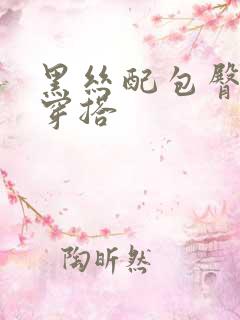 黑丝配包臀
穿搭
陶昕然